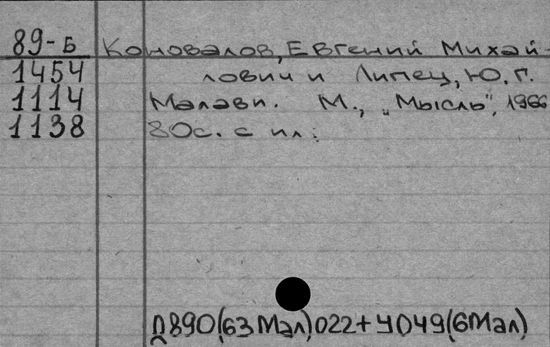 89-Б Коновалов, Евгений Михай-
1454 лович и Липец, Ю. Г.
1114 Малави. М., „Мысль", 1966
1138 80с. с ил.
Д890(63Мал)022+У049(6Мал)